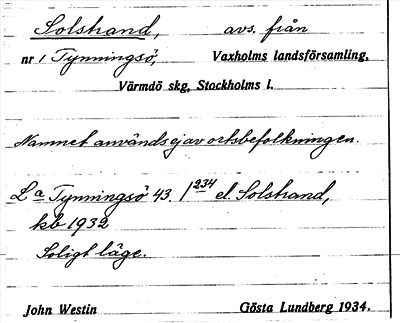 Solstrand, avs. från
nr 1 Tynningsö, Vaxholms landsförsamling,
Värmdö skg, Stockholms l.
Namnet används ej av ortsbefolkningen.
La Tynningsö 43. 1 234 el. Solstrand,
kb 1932
Soligt läge.
John Westin Gösta Lundberg 1934.